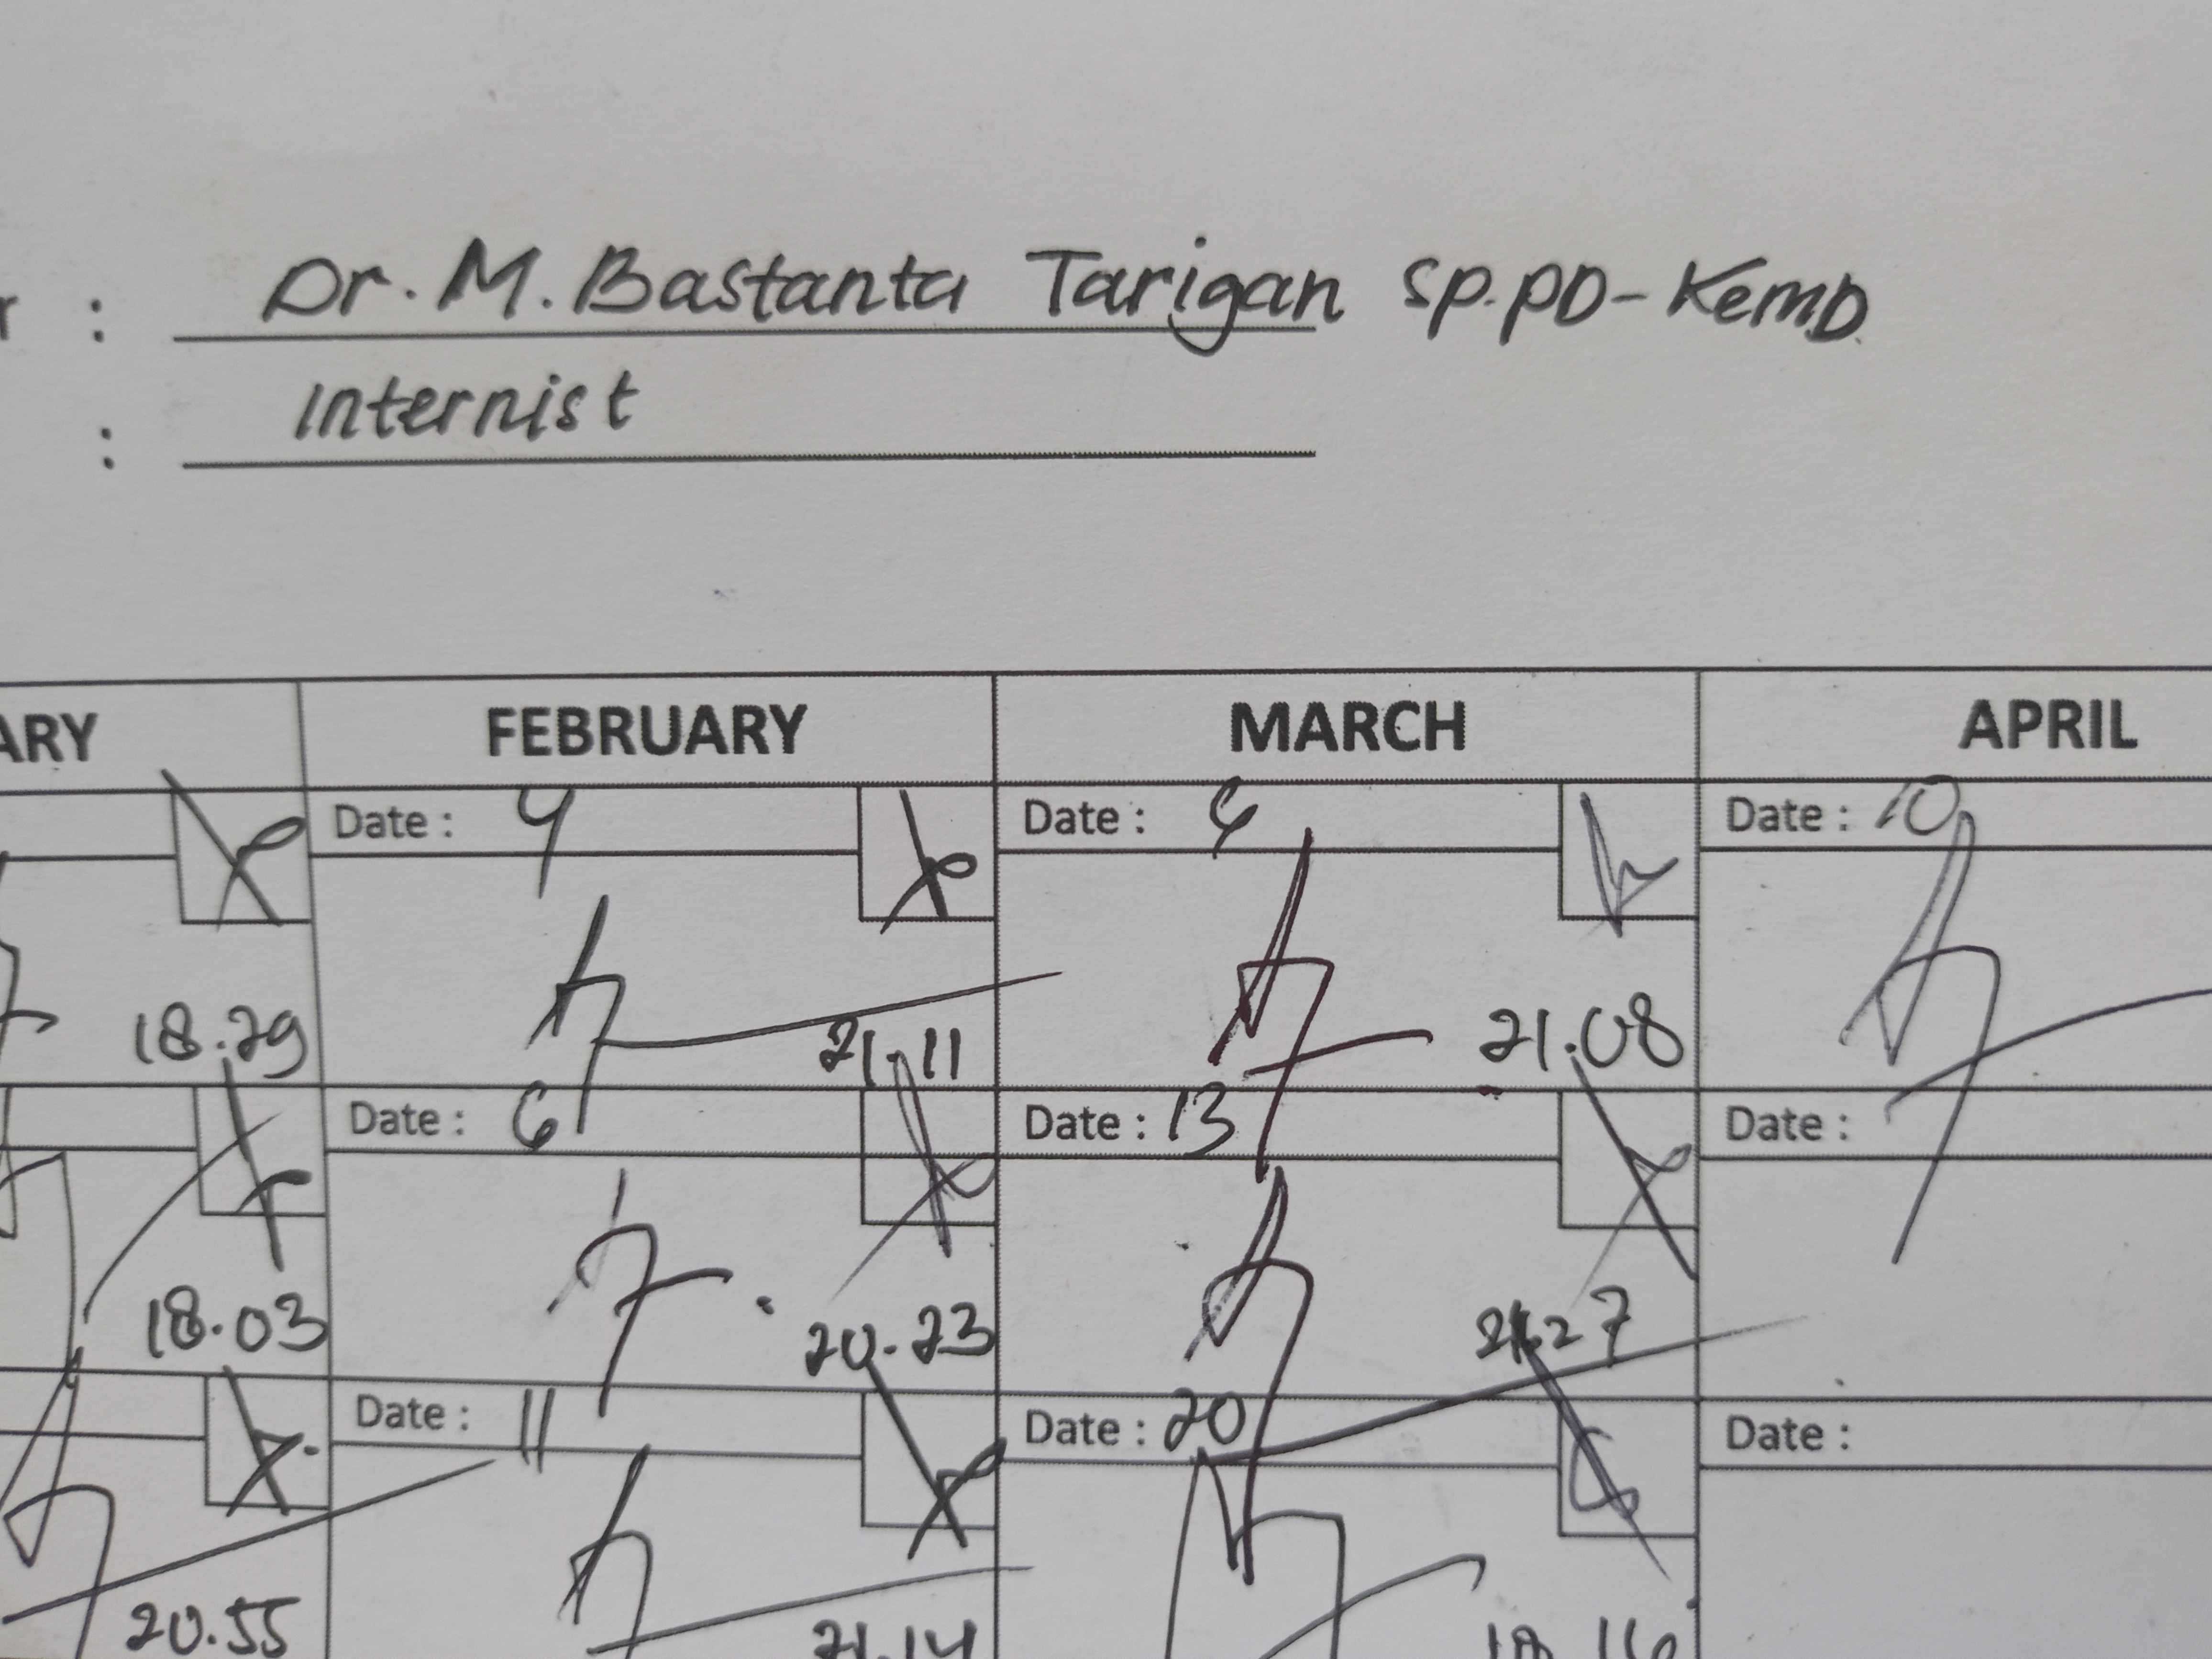 : Dr. M. Bastanta Tarigan Sp.PD-KemD
: Internist
FEBRUARY MARCH APRIL
Date : 4 Date : 6 Date : 10
18.29 21.11 21.08
Date : 6 Date : 13 Date :
18.03 20.23
Date : 11 Date : 20 Date :
20.55 21.14